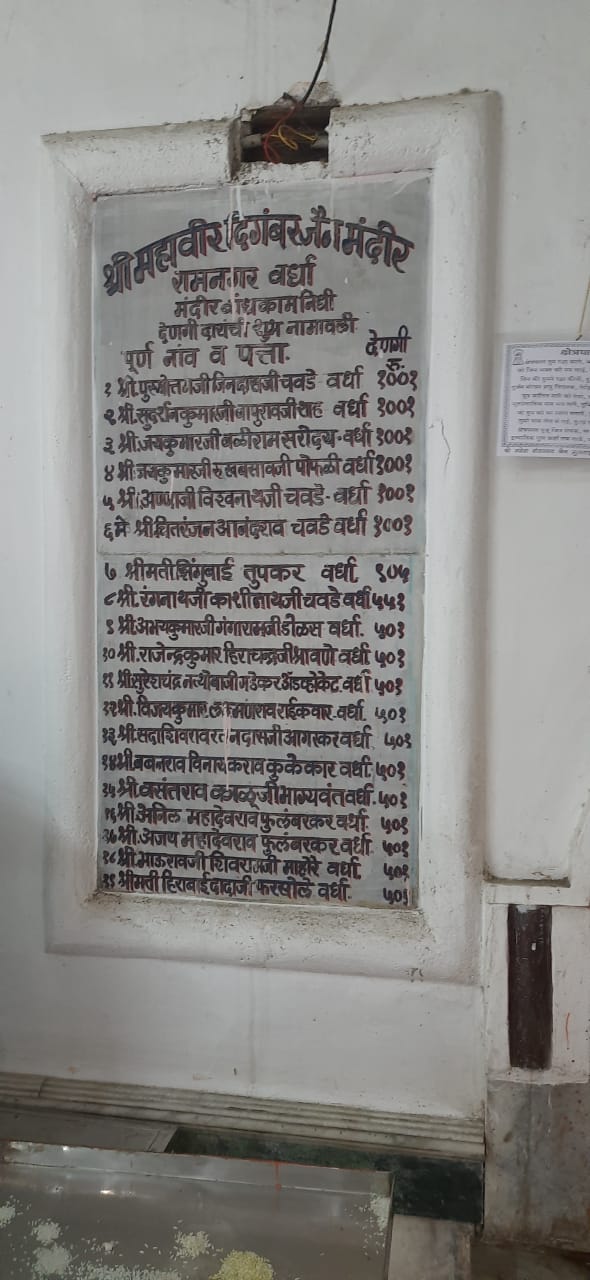 श्री महावीर दिगंबर जैन मंदीर
रामनगर वर्धा
मंदीर बांधकाम निधी
देणगी दायंची शुभ नामावली
पूर्ण नांव व पत्ता. देणगी
रु.
१ श्री. पुरुषोत्तमजी जिनदासजी चवडे वर्धा १००१
२ श्री. सुदर्शनकुमारजी बापुरावजी शाह वर्धा १००१
३ श्री. जयकुमारजी बळीराम सरीदय - वर्धा १००१
४ श्री. जयकुमारजी रुखबसावजी पोफळी वर्धा १००१
५ श्री. अण्णाजी विश्वनाथजी चवडे - वर्धा १००१
६ मे श्री चितरंजन आनंदराव चवडे वर्धा १००१
७ श्रीमती झिंगुबाई तुपकर वर्धा. ९०५
८ श्री. रंगनाथजी काशीनाथजी चवडे वर्धा ५५१
९ श्री. अभयकुमारजी गंगारामजी डोळस वर्धा. ५०१
१० श्री. राजेन्द्रकुमार हिराचन्द्रजी श्रावणे वर्धा ५०१
११ श्री. सुरेशचंद्र नत्थोबाजी गडेकर अ‍ॅडव्होकेट वर्धा ५०१
१२ श्री. विजयकुमार लक्ष्मणराव राईकवार वर्धा. ५०१
१३ श्री. सदाशिवराव रतनदासजी आगरकर वर्धा ५०१
१४ श्री. बबनराव विनायकराव कुकेकार वर्धा. ५०१
१५ श्री. वसंतराव काळूजी भाग्यवंत वर्धा. ५०१
१६ श्री. अनिल महादेवराव फुलंबरकर वर्धा. ५०१
१७ श्री. अजय महादेवराव फुलंबरकर वर्धा. ५०१
१८ श्री. भाऊरावजी शिवरामजी माहोरे वर्धा. ५०१
१९ श्रीमती हिराबाई दादाजी फरसोले वर्धा. ५०१